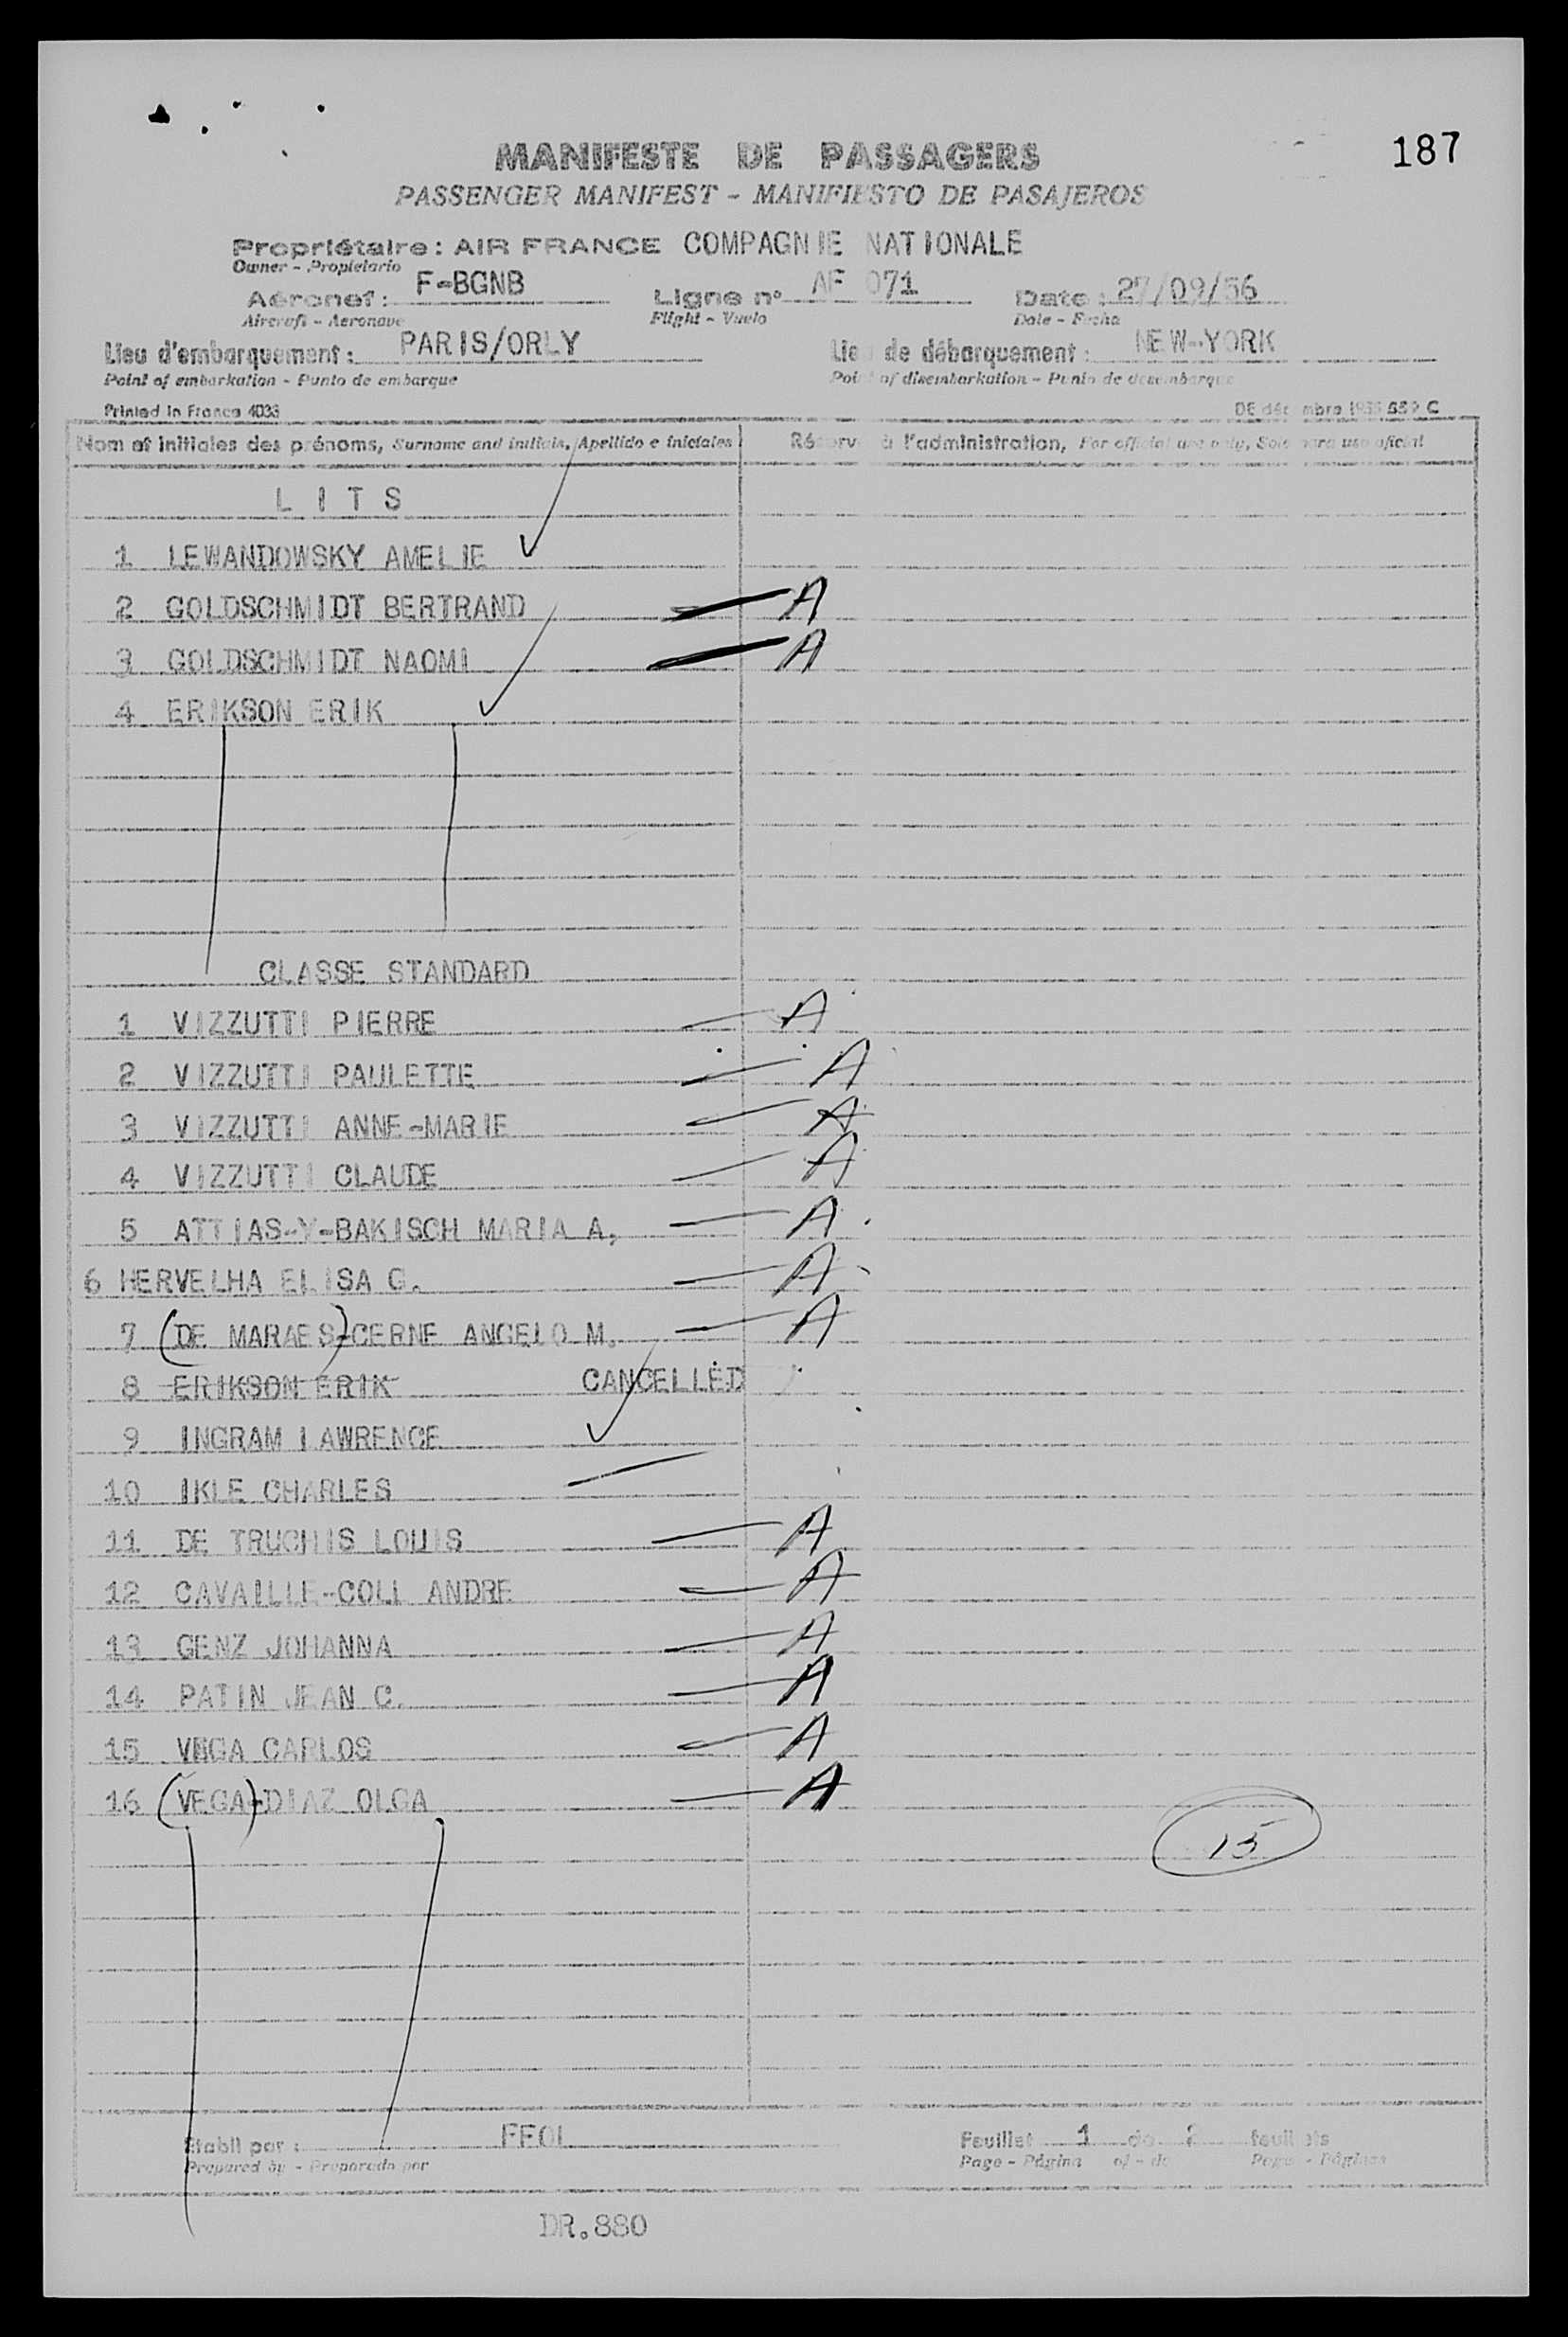 187
MANIFESTE DE PASSAGERS
PASSENGER MANIFEST - MANIFIESTO DE PASAJEROS
Propriétaire : AIR FRANCE COMPAGNIE NATIONALE
Owner - Propietario
Aéronef : F-BGNB Ligne n° AF 071 Date : 27/09/56
Aircraft - Aeronave Flight - Vuelo Date - Fecha
Lieu d'embarquement : PARIS/ORLY Lieu de débarquement : NEW-YORK
Point of embarkation - Punto de embarque Point of disembarkation - Punto de desembarque
Printed in France 4033 DE décembre 1955 559 C
Nom et initiales des prénoms, Surname and initials, Apellido e iniciales Réservé à l'administration, For official use only, Solo para uso oficial
L I T S
1 LEWANDOWSKY AMELIE
2 GOLDSCHMIDT BERTRAND A
3 GOLDSCHMIDT NAOMI A
4 ERIKSON ERIK
CLASSE STANDARD
1 VIZZUTTI PIERRE A
2 VIZZUTTI PAULETTE A
3 VIZZUTTI ANNE-MARIE A
4 VIZZUTTI CLAUDE A
5 ATTIAS-Y-BAKISCH MARIA A, A
6 HERVELHA ELISA G. A
7 (DE MARAES)-CERNE ANGELO M. A
8 ERIKSON ERIK CANCELLED
9 INGRAM LAWRENCE
10 IKLE CHARLES
11 DE TRUCHIS LOUIS A
12 CAVAILLE-COLL ANDRE A
13 GENZ JOHANNA A
14 PATIN JEAN C. A
15 VEGA CARLOS A
16 (VEGA)-DIAZ OLGA A
15
Etabli par : Feuillet 1 de 2 feuillets
Prepared by - Preparado por Page - Página of - de Pages - Páginas
DR.880